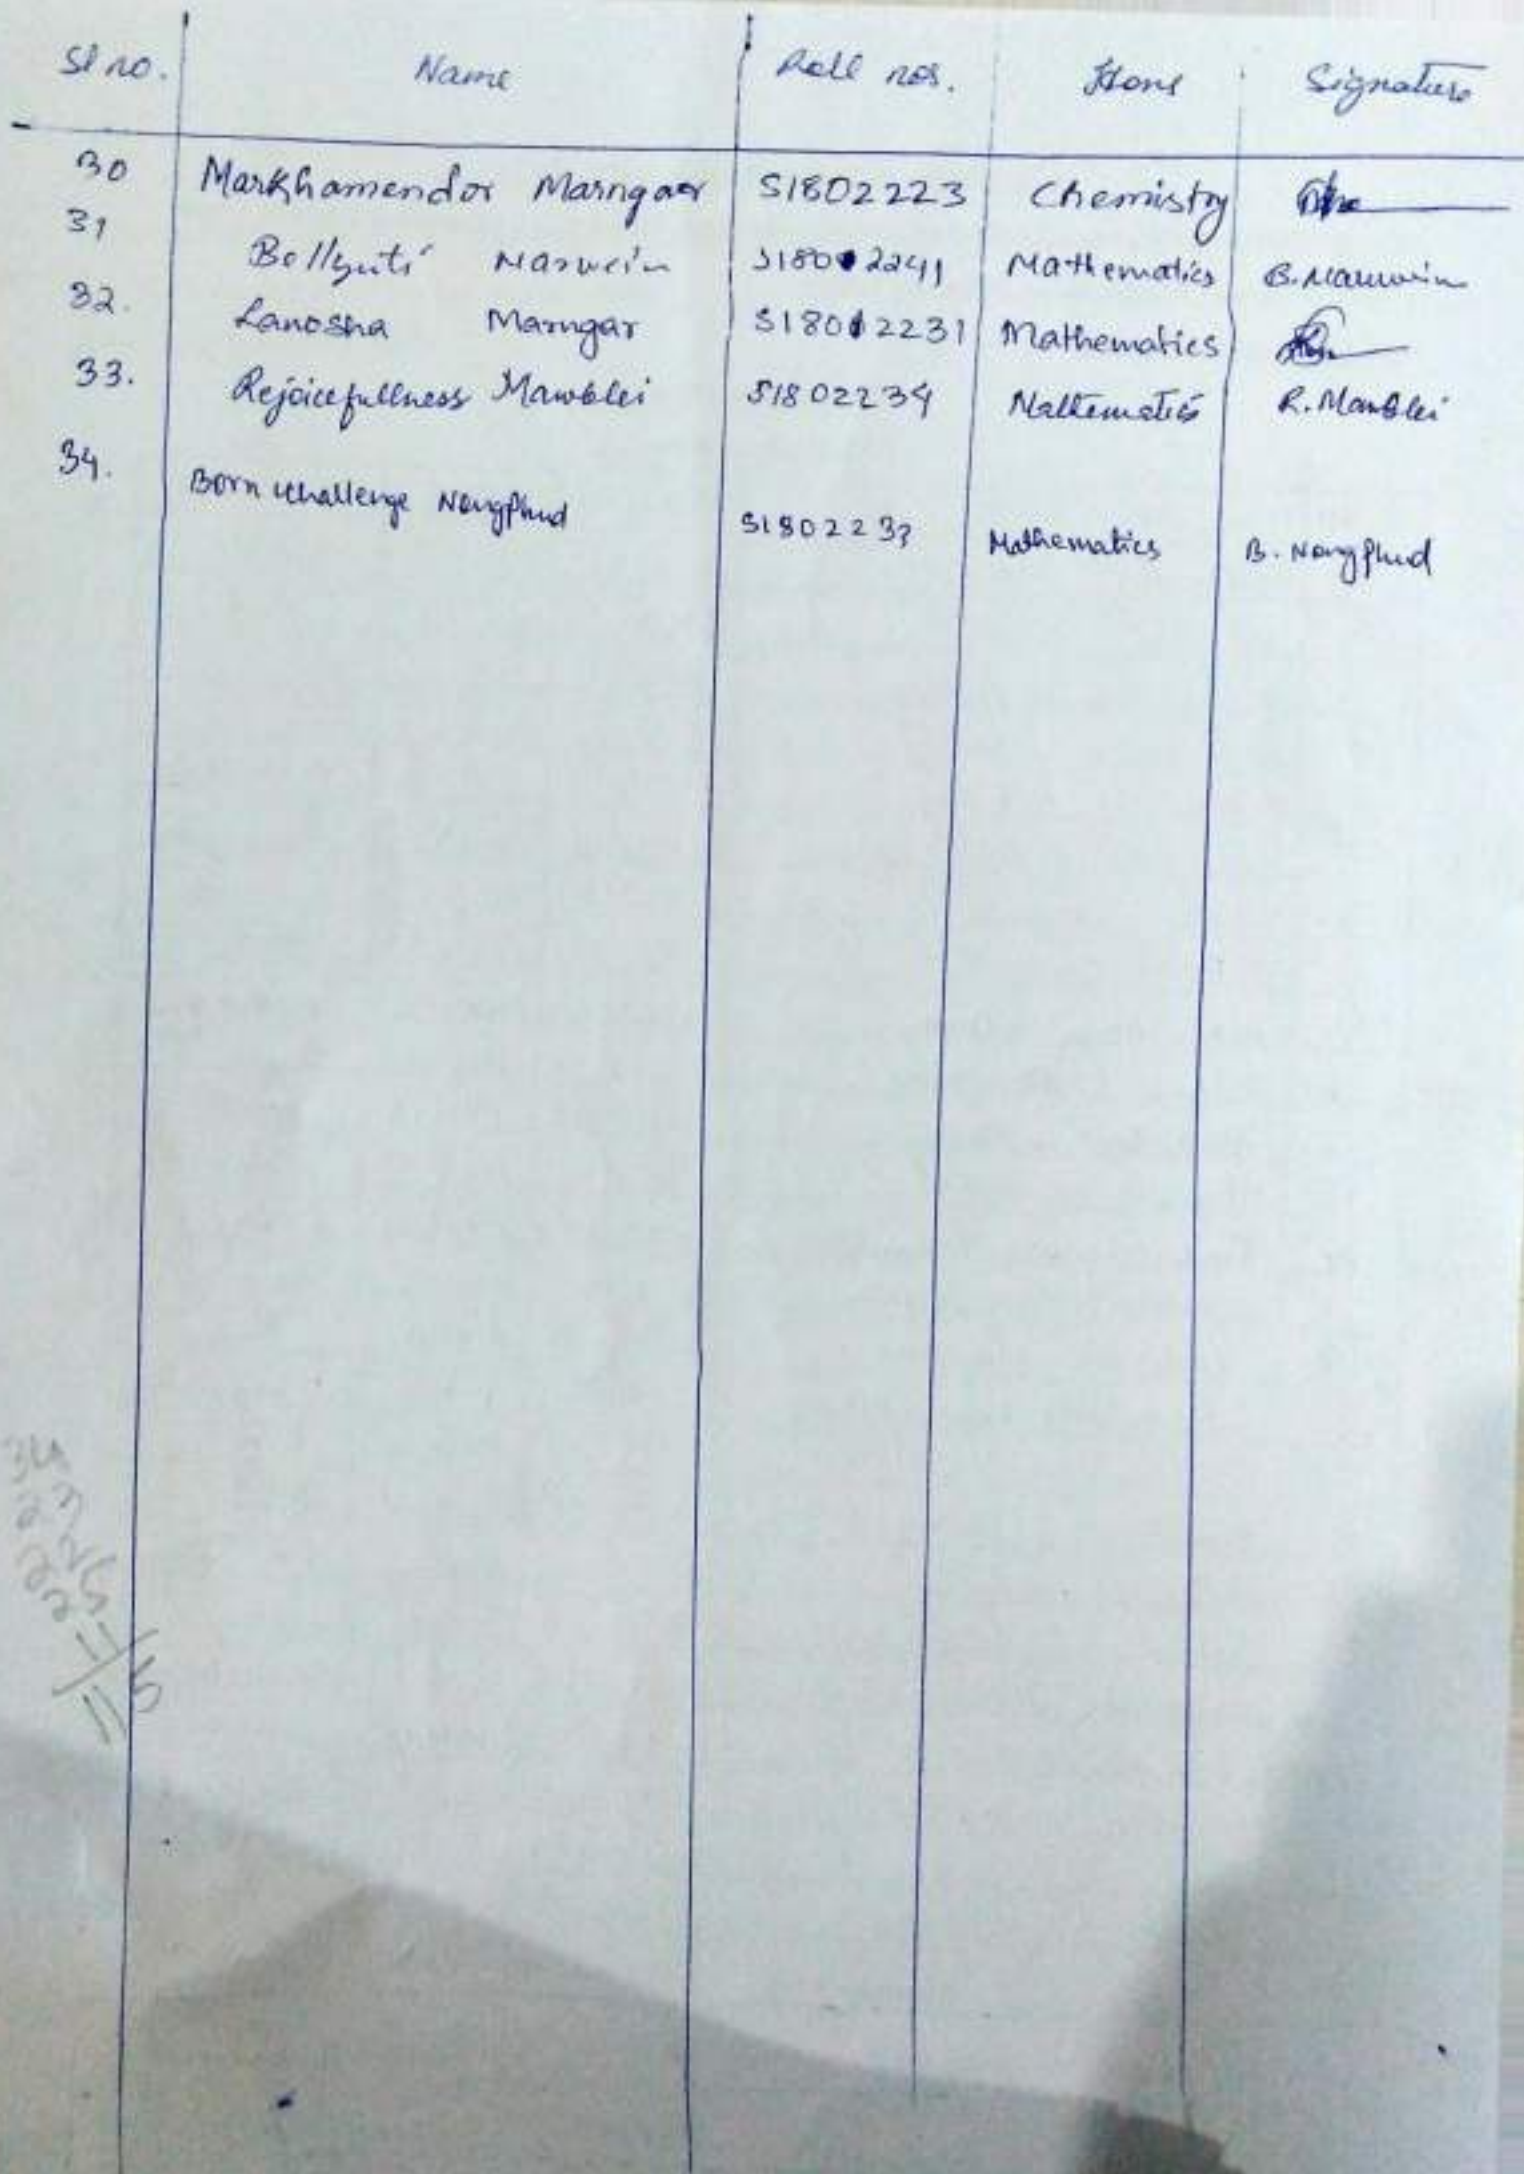 Sl no. Name Roll nos. Hons Signature
30 Markhamendor Marngar S1802223 Chemistry
31 Bollyuti Marwein S1802241 Mathematics B. Marwein
32. Lanosha Marngar S1802231 Mathematics
33. Rejoicefullness Mawblei S1802234 Mathematics R. Mawblei
34. Born challenge Nongphud S180223 Mathematics B. Nongphud
34
23
25
22
11
115